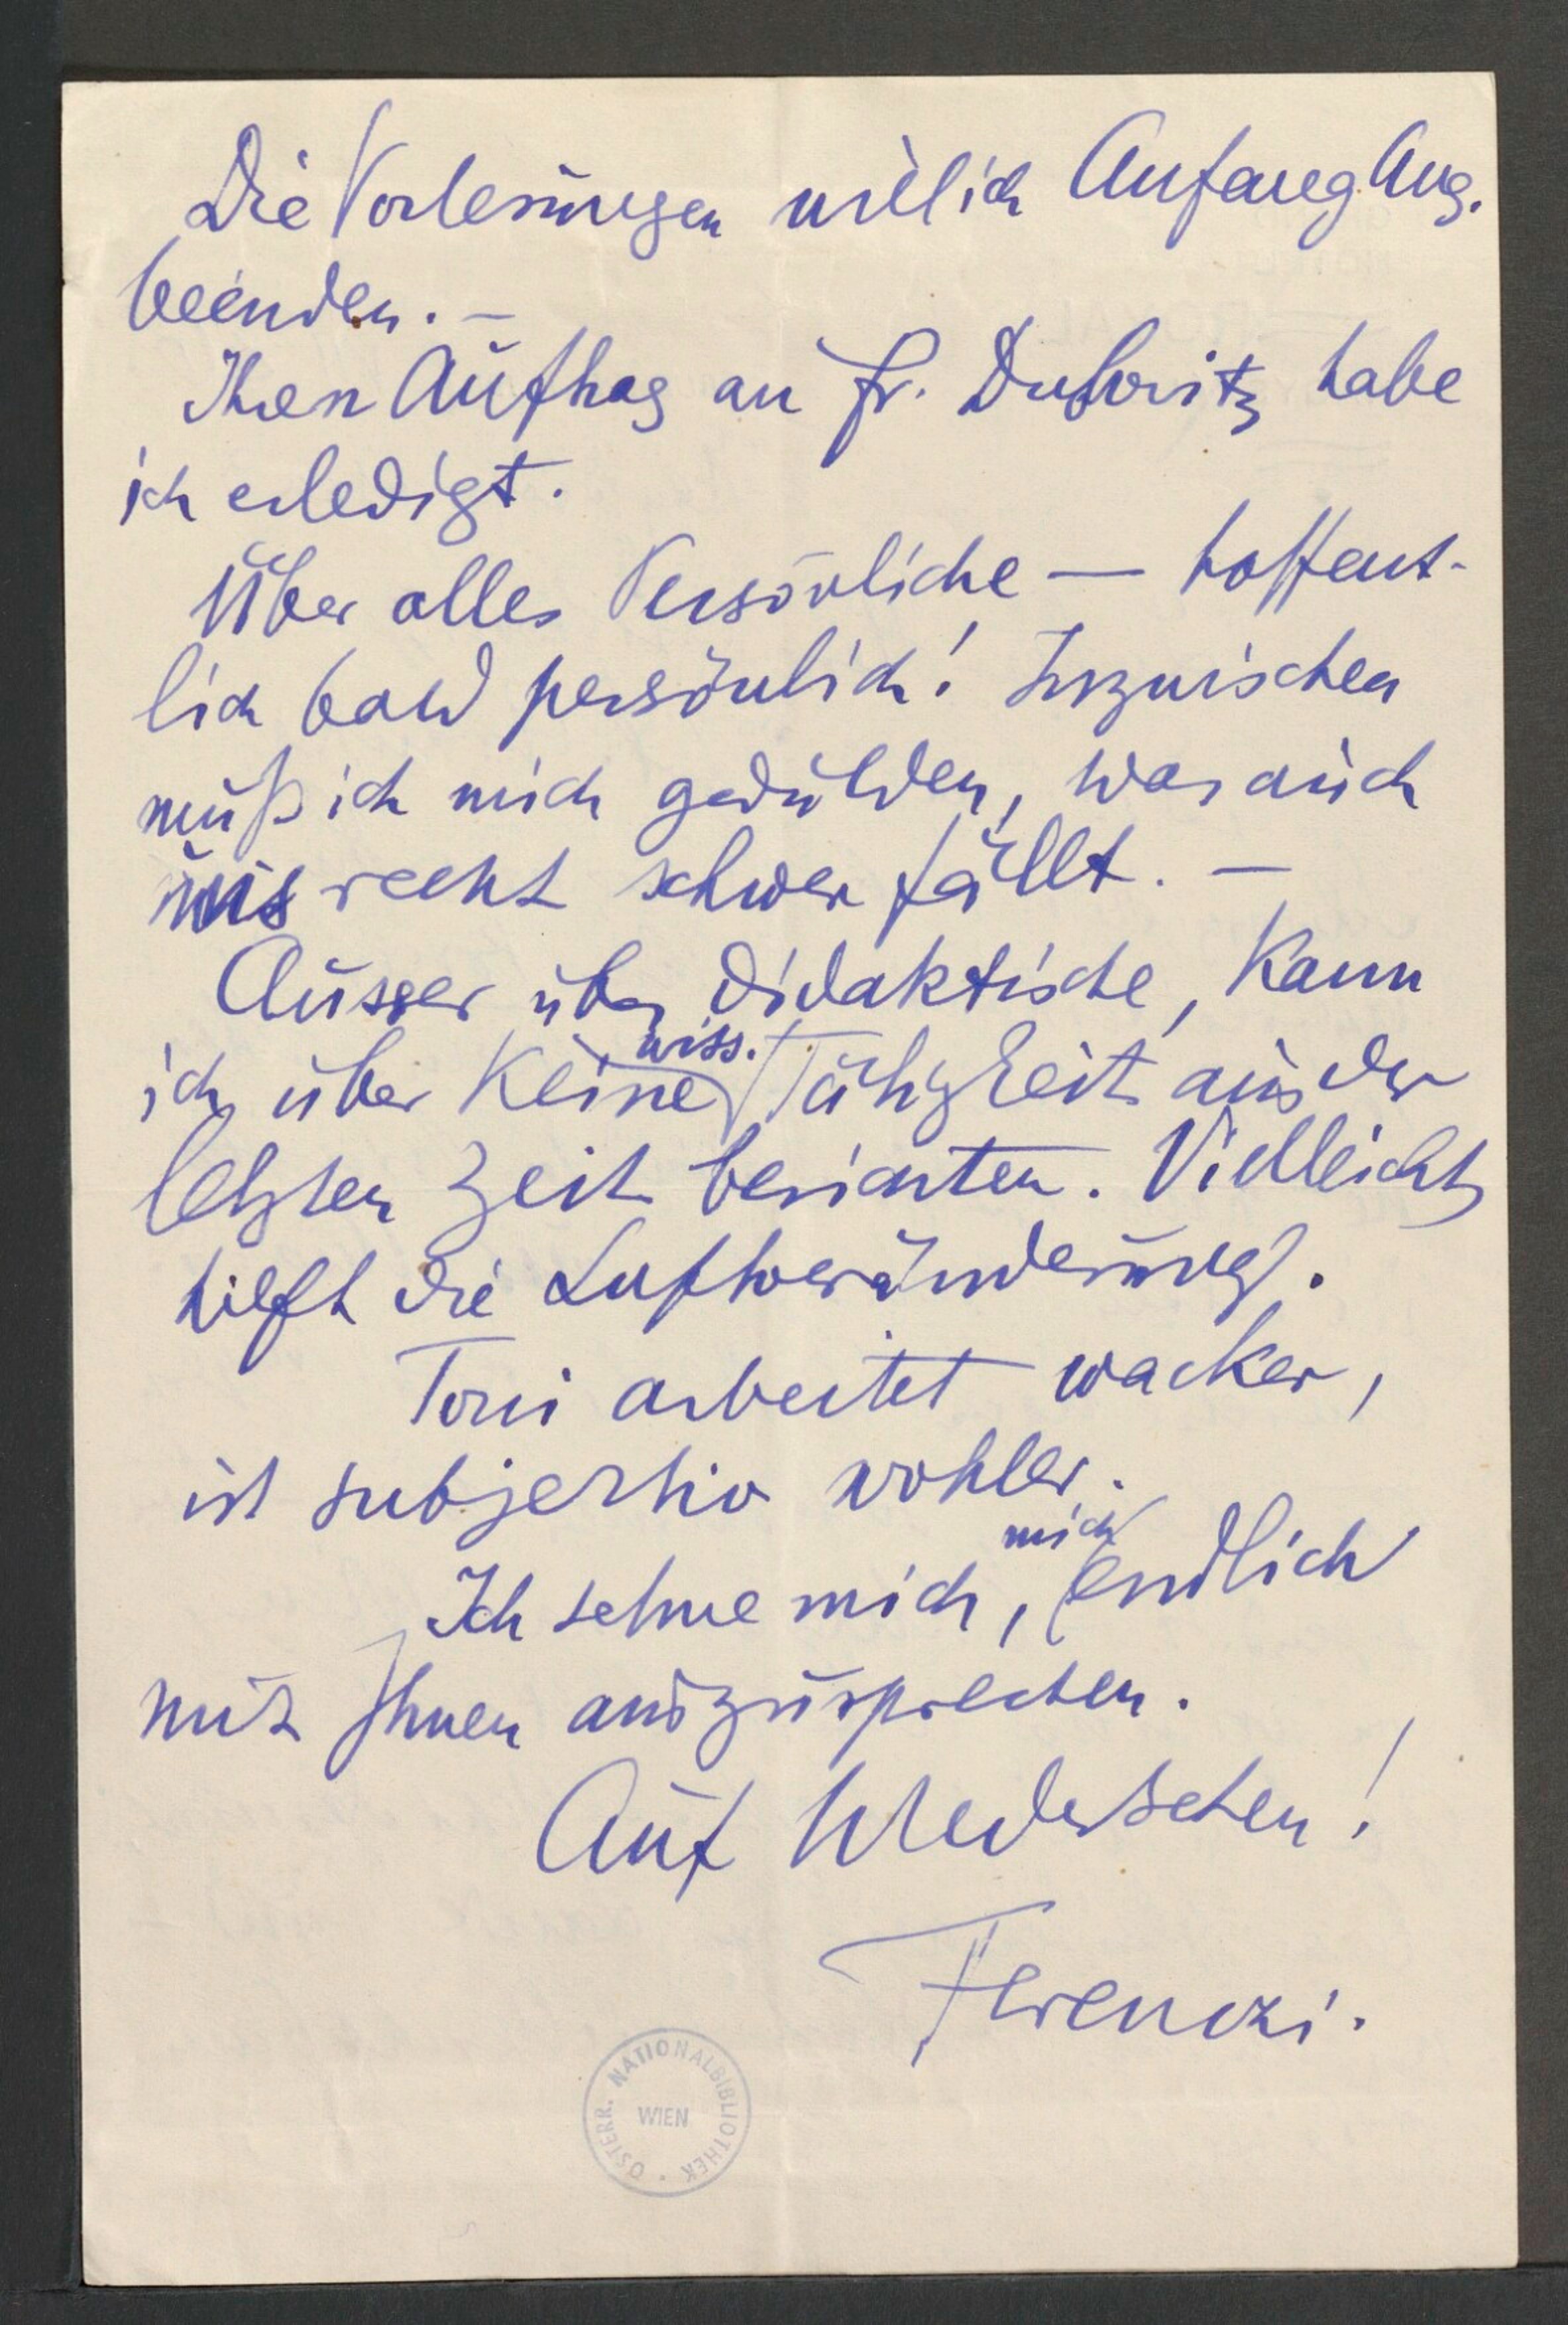 Die Vorlesungen will ich Anfang Aug.
beenden. –
Ihren Auftrag an Fr. Dubovitz habe
ich erledigt.
Über alles Persönliche — hoffent-
lich bald persönlich! Inzwischen
muß ich mich gedulden, was auch
uns recht schwer fällt. –
Ausser über didaktische, kann
ich über keine wiss. Tätigkeit aus der
letzten Zeit berichten. Vielleicht
hilft die Luftveränderung.
Toni arbeitet wacker,
ist subjektiv wohler.
Ich sehne mich, mich endlich
mit Ihnen auszusprechen.
Auf Wiedersehen!
Ferenczi.
ÖSTERR. NATIONALBIBLIOTHEK
WIEN